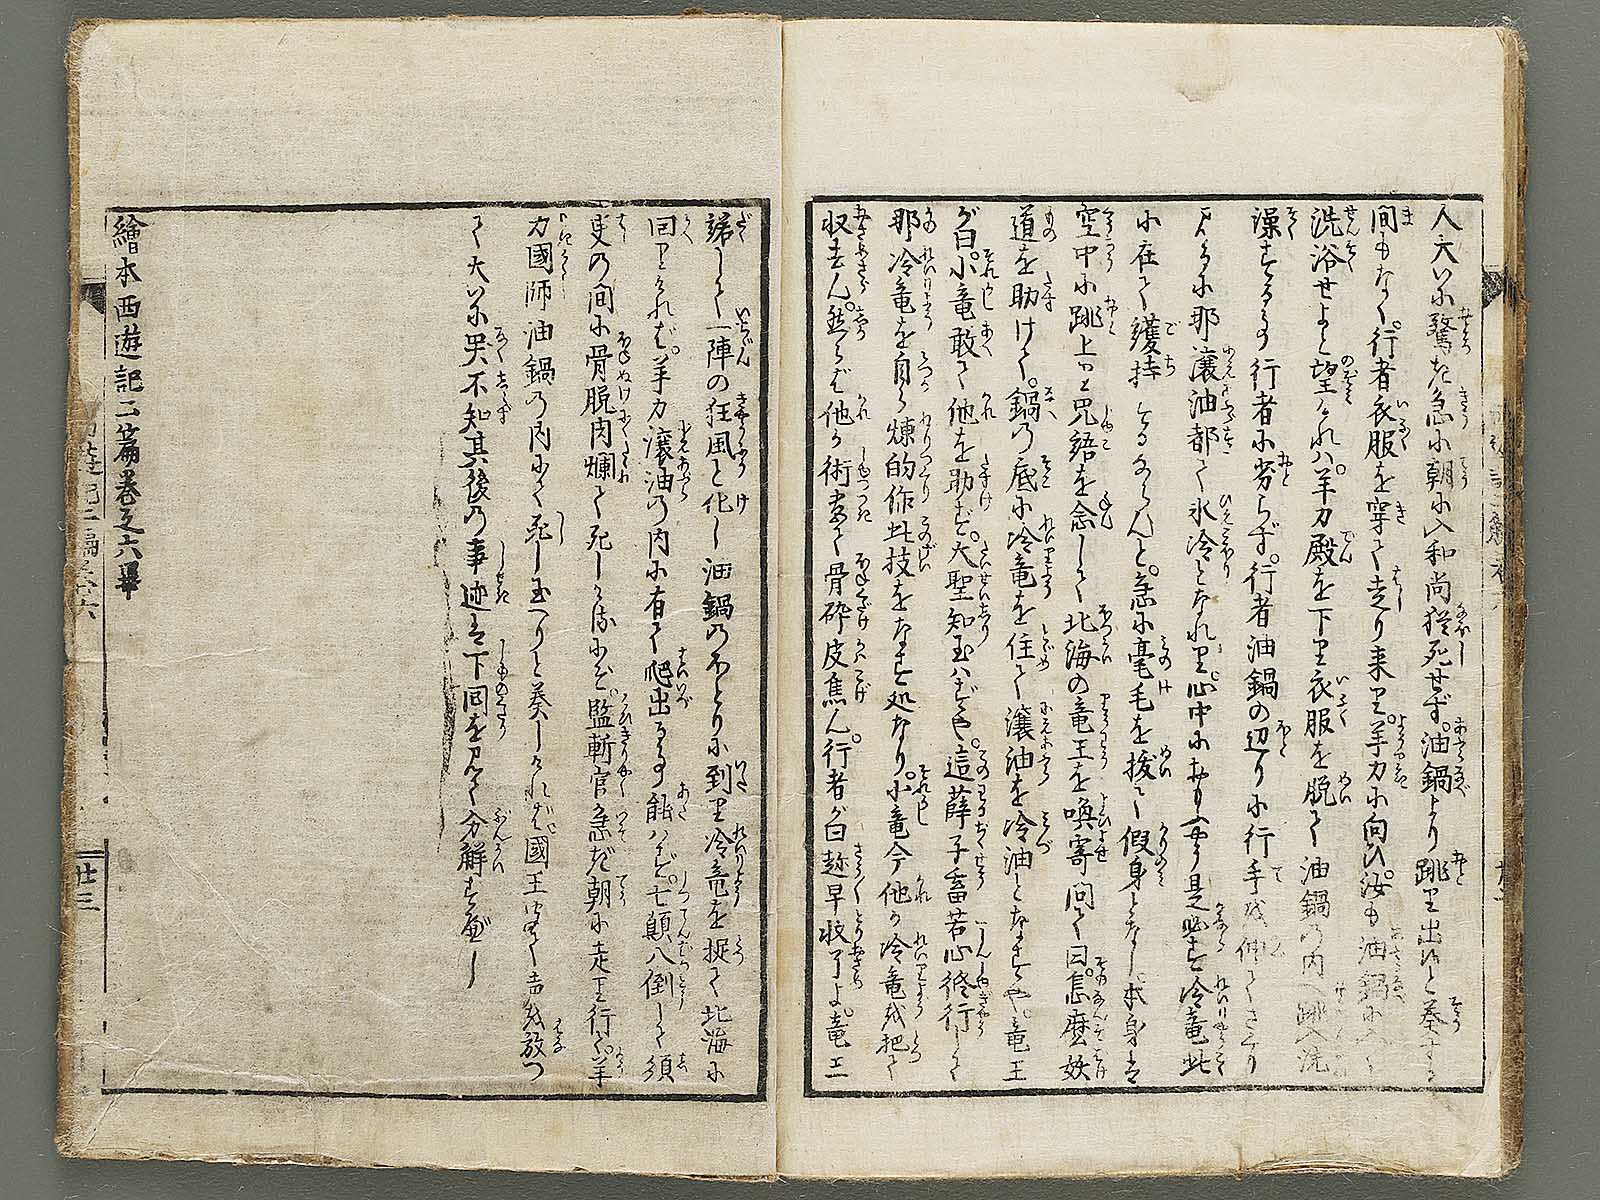 人大いに驚き急に朝に入和尚猶死せず。油鍋より跳り出ひと奏する
間もなく。行者衣服を穿て走り来り。羊力に向ひ。汝も油鍋に
洗浴せよと望ければ。羊力殿を下り衣服を脱て油鍋の内へ跳入洗
澡するに行者に劣らず。行者油鍋の辺りに行手を伸てさぐり
見るに那滾油都て氷冷となれり。心中におもふ是必ず冷竜此
に在て護持するならんと。急に毫毛を抜て假身となし本身は
空中に跳上り咒語を念して北海の竜王を喚寄問て曰。怎麼妖
道を助けて。鍋の底に冷竜を住て滾油を冷油となすや。竜王
が曰。小竜敢て他を助ず。大聖知玉はずや。這薛子畜苦心修行して
那冷竜を自ら煉的作此技をなす処なり。小竜今他が冷竜を把て
収去ん。然らば他が術尽て骨砕皮焦ん。行者が曰趂早収了よ。竜王
諾して一陣の狂風と化し油鍋のほとりに到り冷竜を捉て北海に
回りければ。羊力滾油の内に有て爬出る事能はず。七顛八倒して須
臾の間に骨脱肉爛て死しけるにぞ。監斬官急だ朝に走り行。羊
力國師油鍋の内にて死し玉へりと奏しければ國王聞て声を放つ
て大いに哭不知其後の事迹は下回を見て分解すべし
繪本西遊記二篇巻之六畢
廿三